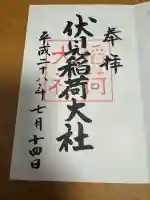 奉拝
伏見稲荷大社
平成二十八年七月十四日